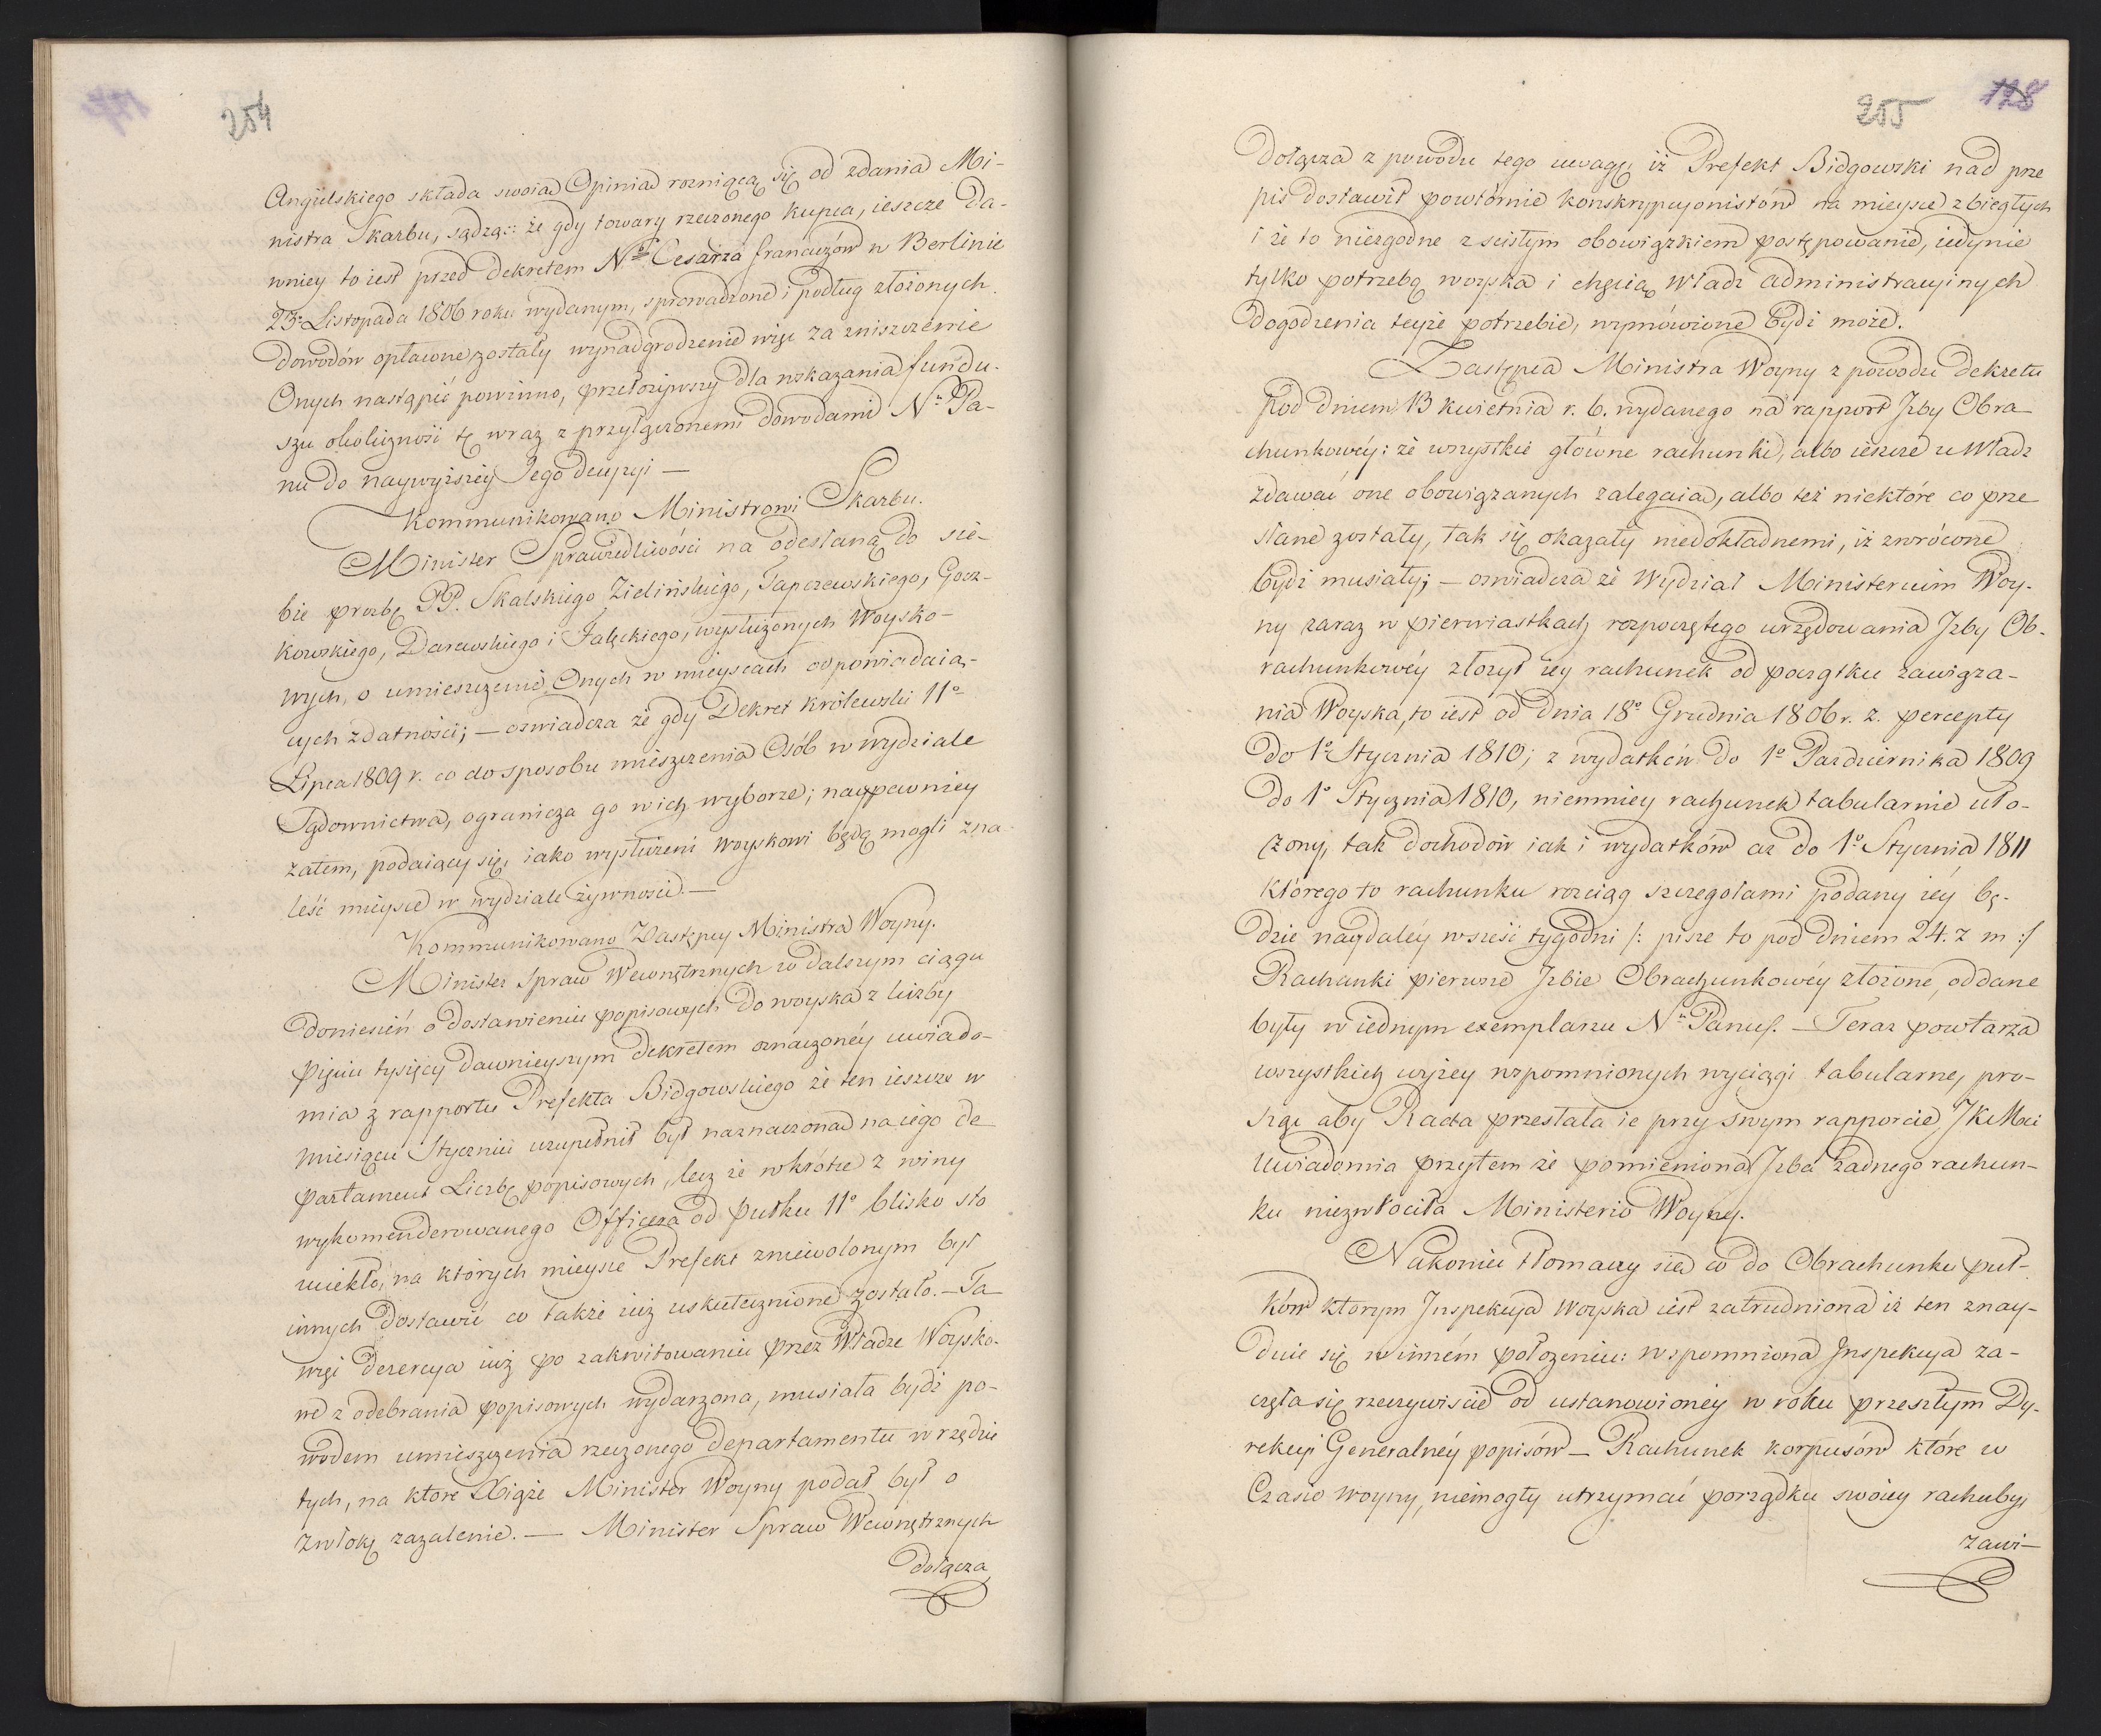 254
Angielskiego składa swoia Opinia rozniącą się od zdania Mi-
nistra Skarbu, sądząc: że gdy towary rzeczonego kupca, ieszcze da-
wniey to iest przed Dekretem Nº Cesarza francuzów w Berlinie
23º Listopada 1806 roku wydanym, sprowadzone i podług złożonych
dowodów opłacone zostały wynadgrodzenie więc za zniszczenie
Onych nastąpić powinno, przełożywszy dla wskazania fundu-
szu okoliczność tę wraz z przyłączonemi dowodami N. Pa-
nu do naywyższey Jego decyzyi —
Kommunikowano Ministrowi Skarbu.
Minister Sprawiedliwości na odesłaną do sie-
bie prozbę PP. Skalskiego Zielińskiego, Tapczewskiego, Gocz-
kowskiego, Darewskiego i Falęckiego, wysłużonych Woysko-
wych, o umieszczenie Onych w mieyscach odpowiadaią-
cych zdatności; — oswiadcza że gdy Dekret krolewski 11º
Lipca 1809 r. co do sposobu mieszczenia Osób w wydziale
Sądownictwa, ogranicza go w ich wyborze; naypewniey
zatem, podaiący się, iako wysłużeni woyskowi będą mogli zna-
leść mieysce w wydziale żywności. —
Kommunikowano Zastępcy Ministra Woyny.
Minister Spraw Wewnętrznych w dalszym ciągu
doniesień o dostawieniu popisowych do woyska z liczby
pięciu tysięcy dawnieyszym dekretem oznaczonéy uwiado-
mia z rapportu Prefekta Bidgowskiego że ten ieszcze w
miesiącu Styczniu uzupełnił był naznaczona na iego de
partament Liczbę popisowych, lecz że wkrótce z winy
wykomenderowanego Officera od pułku 11º blisko sto
uciekło, na których mieysce Prefekt zniewolonym był
innych dostawić co także iuż uskutecznione zostało. — Ta
więc dezercya iuż po zakwitowaniu przez Władze Woysko-
we z odebrania popisowych wydarzona, musiała bydź po-
wodem umieszczenia rzeczonego departamentu w rzędzie
tych, na które Xiąże Minister Woyny podał był o
zwłokę zażalenie. — Minister Spraw Wewnętrznych
dołącza
255
128
Dołącza z powodu tego uwagę iż Prefekt Bidgowski nad prze
pis dostawił powtórnie konskrypcyonistów na mieysce zbiegłych
i że to niezgodne z scisłym obowiązkiem postępowanie, iedynie
tylko potrzebą woyska i chęcią Władz administracyinych
dogodzenia teyże potrzebie, wymówione bydź może.
Zastępca Ministra Woyny z powodu dekretu
pod dniem 13 kwietnia r. b. wydanego na rapport Izby Obra-
chunkowéy: że wszystkie główne rachunki, albo ieszcze u Władz
zdawać one obowiązanych zalegaia, albo też niektóre co prze
słane zostały, tak się okazały niedokładnemi, iż zwrócone
bydź musiały; — oswiadcza że Wydział Ministerium Woy-
ny zaraz w pierwiastkach rozpoczętego urzędowania Izby Ob-
rachunkowéy złożył iey rachunek od początku zawiąza-
nia Woyska, to iest od dnia 18º Grudnia 1806 r. z percepty
do 1º Stycznia 1810; z wydatków do 1º Pazdziernika 1809
do 1º Stycznia 1810, niemniey rachunek tabularnie uło-
żony, tak dochodów iak i wydatków aż do 1º Stycznia 1811
którego to rachunku rozciąg szczegołami podany iéy bę-
dzie naydaléy w sześć tygodni /: pisze to pod dniem 24. z m :/
Rachunki pierwsze Izbie Obrachunkowéy złożone, oddane
były w iednym exemplarzu N. Panu. — Teraz powtarza
wszystkich wyżey wspomnionych wyciągi tabularne, pro-
sząc aby Rada przesłała ie przy swym rapporcie JKMci
Uwiadomia przytem że pomieniona Izba żadnego rachun-
ku niezwłociła Ministerio Woyny.
Nakoniec tłomaczy sie co do Obrachunku puł-
ków ktorym Inspekcya woyska iest zatrudniona iż ten znay-
duie się w inném położeniu: wspomniona Inspekcya za-
częła się rzeczywiscie od ustanowioney w roku przeszłym Dy-
rekcyi Generalnéy popisów — Rachunek korpusów które w
Czasie woyny, niemogły utrzymać porządku swoiey rachuby,
zawi—